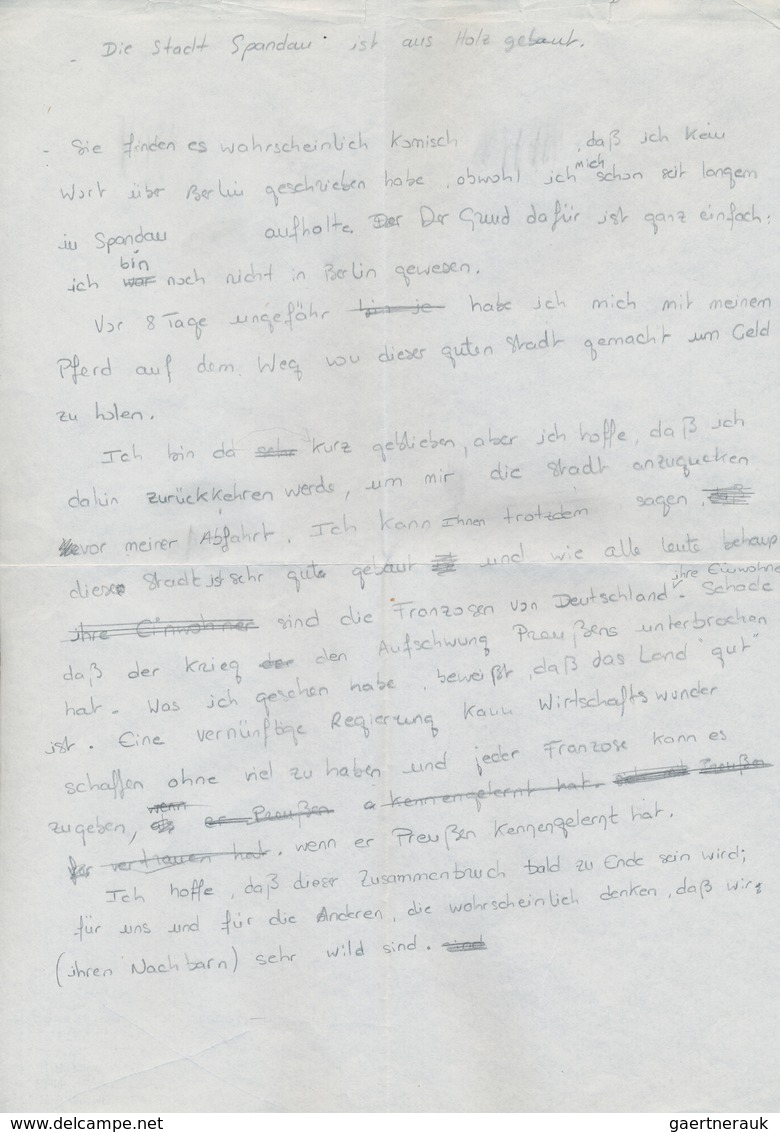 - Die Stadt Spandau ist aus Holz gebaut.
- Sie finden es wahrscheinlich komisch , daß ich kein
Wort über Berlin geschrieben habe, obwohl ich mich schon seit langem
in Spandau aufhalte. Der Der Grund dafür ist ganz einfach:
ich war bin noch nicht in Berlin gewesen.
Vor 8 Tage ungefähr bin je habe ich mich mit meinem
Pferd auf dem Weg dieser guten Stadt gemacht um Geld
zu holen.
Ich bin da sehr kurz geblieben, aber ich hoffe, daß ich
dahin zurückkehren werde, um mir die Stadt anzugucken
vor meiner Abfahrt. Ich kann Ihnen trotzdem sagen, daß
diese Stadt ist sehr gute gebaut und wie alle leute behaup
ihre Einwohner sind die Franzosen von Deutschland. ihre Einwohne Schade
daß der Krieg den Aufschwung Preußens unterbrochen
hat. Was ich gesehen habe, beweißt, daß das Land "gut"
ist. Eine vernünftige Regierung kann Wirtschaftswunder
schaffen ohne viel zu haben und jeder Franzose kann es
zugeben, wenn er Preußen kennengelernt hat. Preußen
vertrauen hat. wenn er Preußen kennengelernt hat.
Ich hoffe, daß dieser Zusammenbruch bald zu Ende sein wird;
für uns und für die Anderen, die wahrscheinlich denken, daß wir
(ihren Nachbarn) sehr wild sind. sind
www.delcampe.net
gaertnerauk